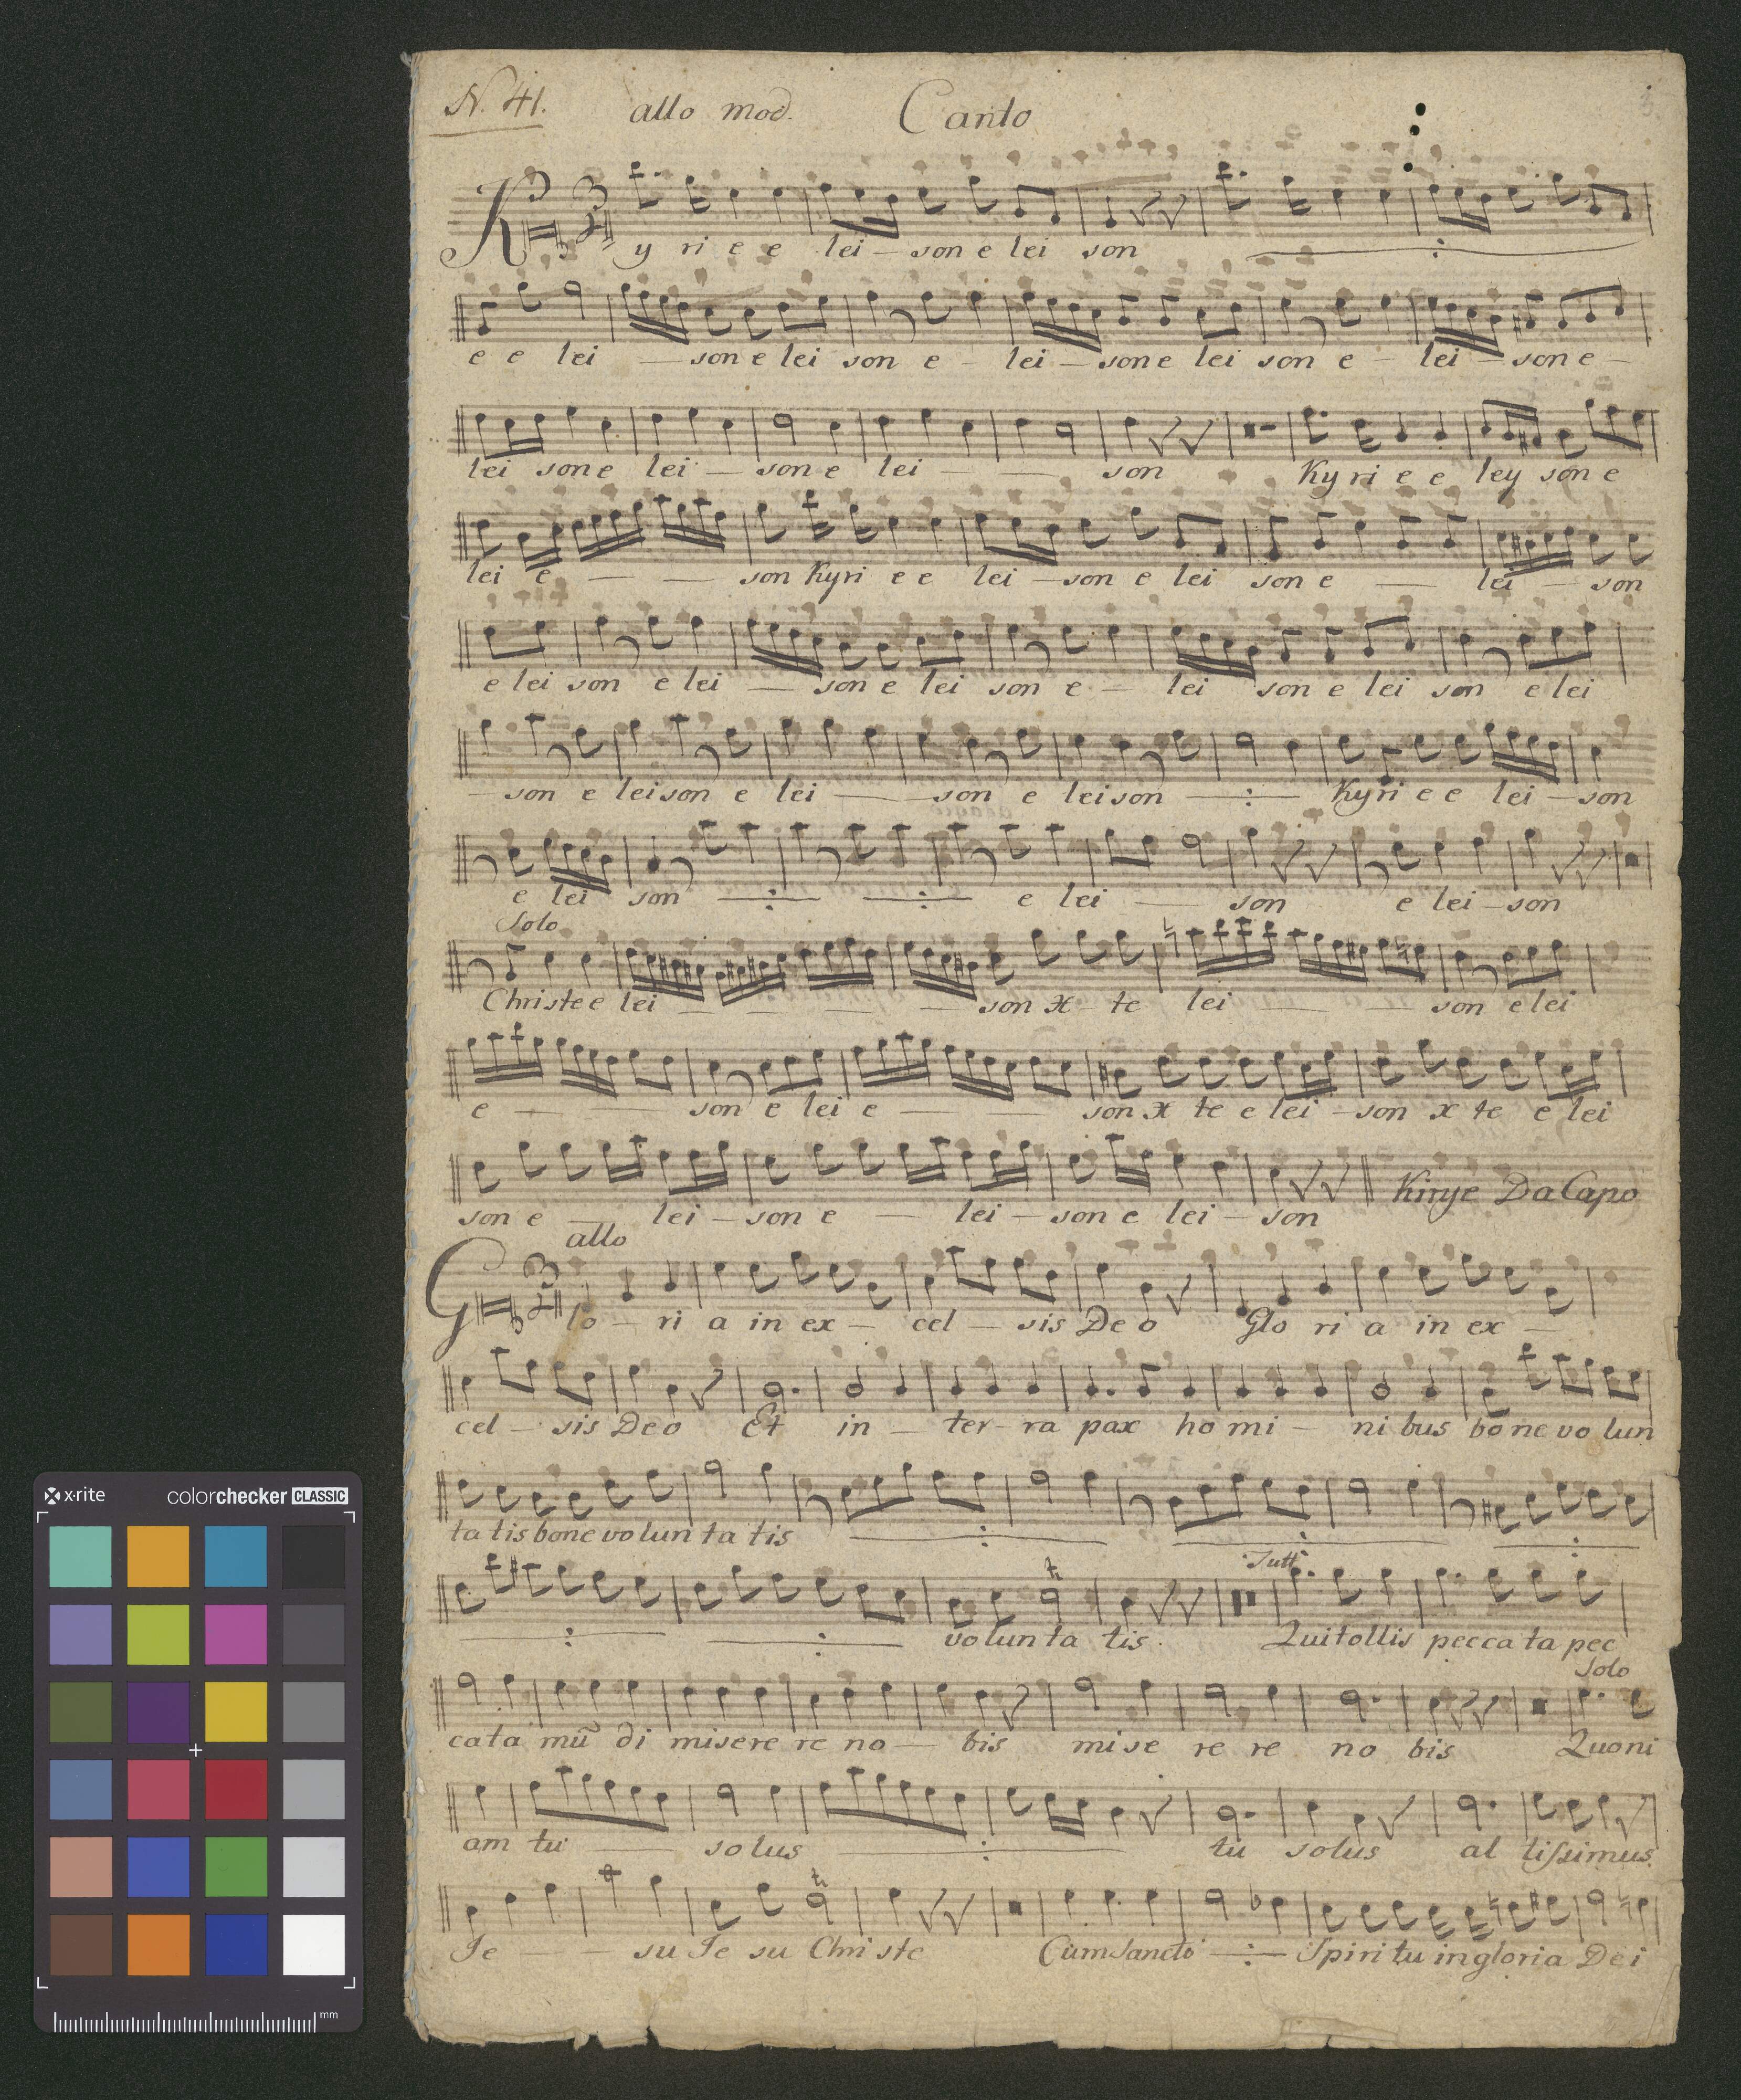 N. 41. allo mod. Canto
Ky ri e e lei — son e lei son
e e lei — son e lei son e - lei — son e lei son e - lei — son e —
lei son e lei — son e lei — — son Ky ri e e ley son e
lei e — — son Kyri e e lei — son e lei son e — lei — son
e lei son e lei — son e lei son e — lei son e lei son e lei
— son e lei son e lei — son e lei son — : — Kyri e e lei — son
e lei son — : — — : — e lei — son e lei — son
Solo
Christe e lei — — — — son X - te lei — — son e lei
e — — son e lei e — — son X te e lei — son x te e lei
son e — lei — son e — lei — son e lei — son Kirye Da Capo
allo
Glo — ri a in ex — cel — sis De o Glo ri a in ex —
cel — sis De o Et in — ter - ra pax ho mi — ni bus bo ne vo lun
ta tis bone vo lun ta tis — : — — : — — : —
Tutt:
— : — — : — vo lun ta tis. Qui tollis pecca ta pec
Solo
cata mū di misere re no — bis mi se re re no bis Quoni
am tu — so lus — : — tu solus al tiſsimus
Je — — su Je su Chri ste Cum Sancto — : — Spiri tu in gloria De i
x-rite colorchecker CLASSIC
mm